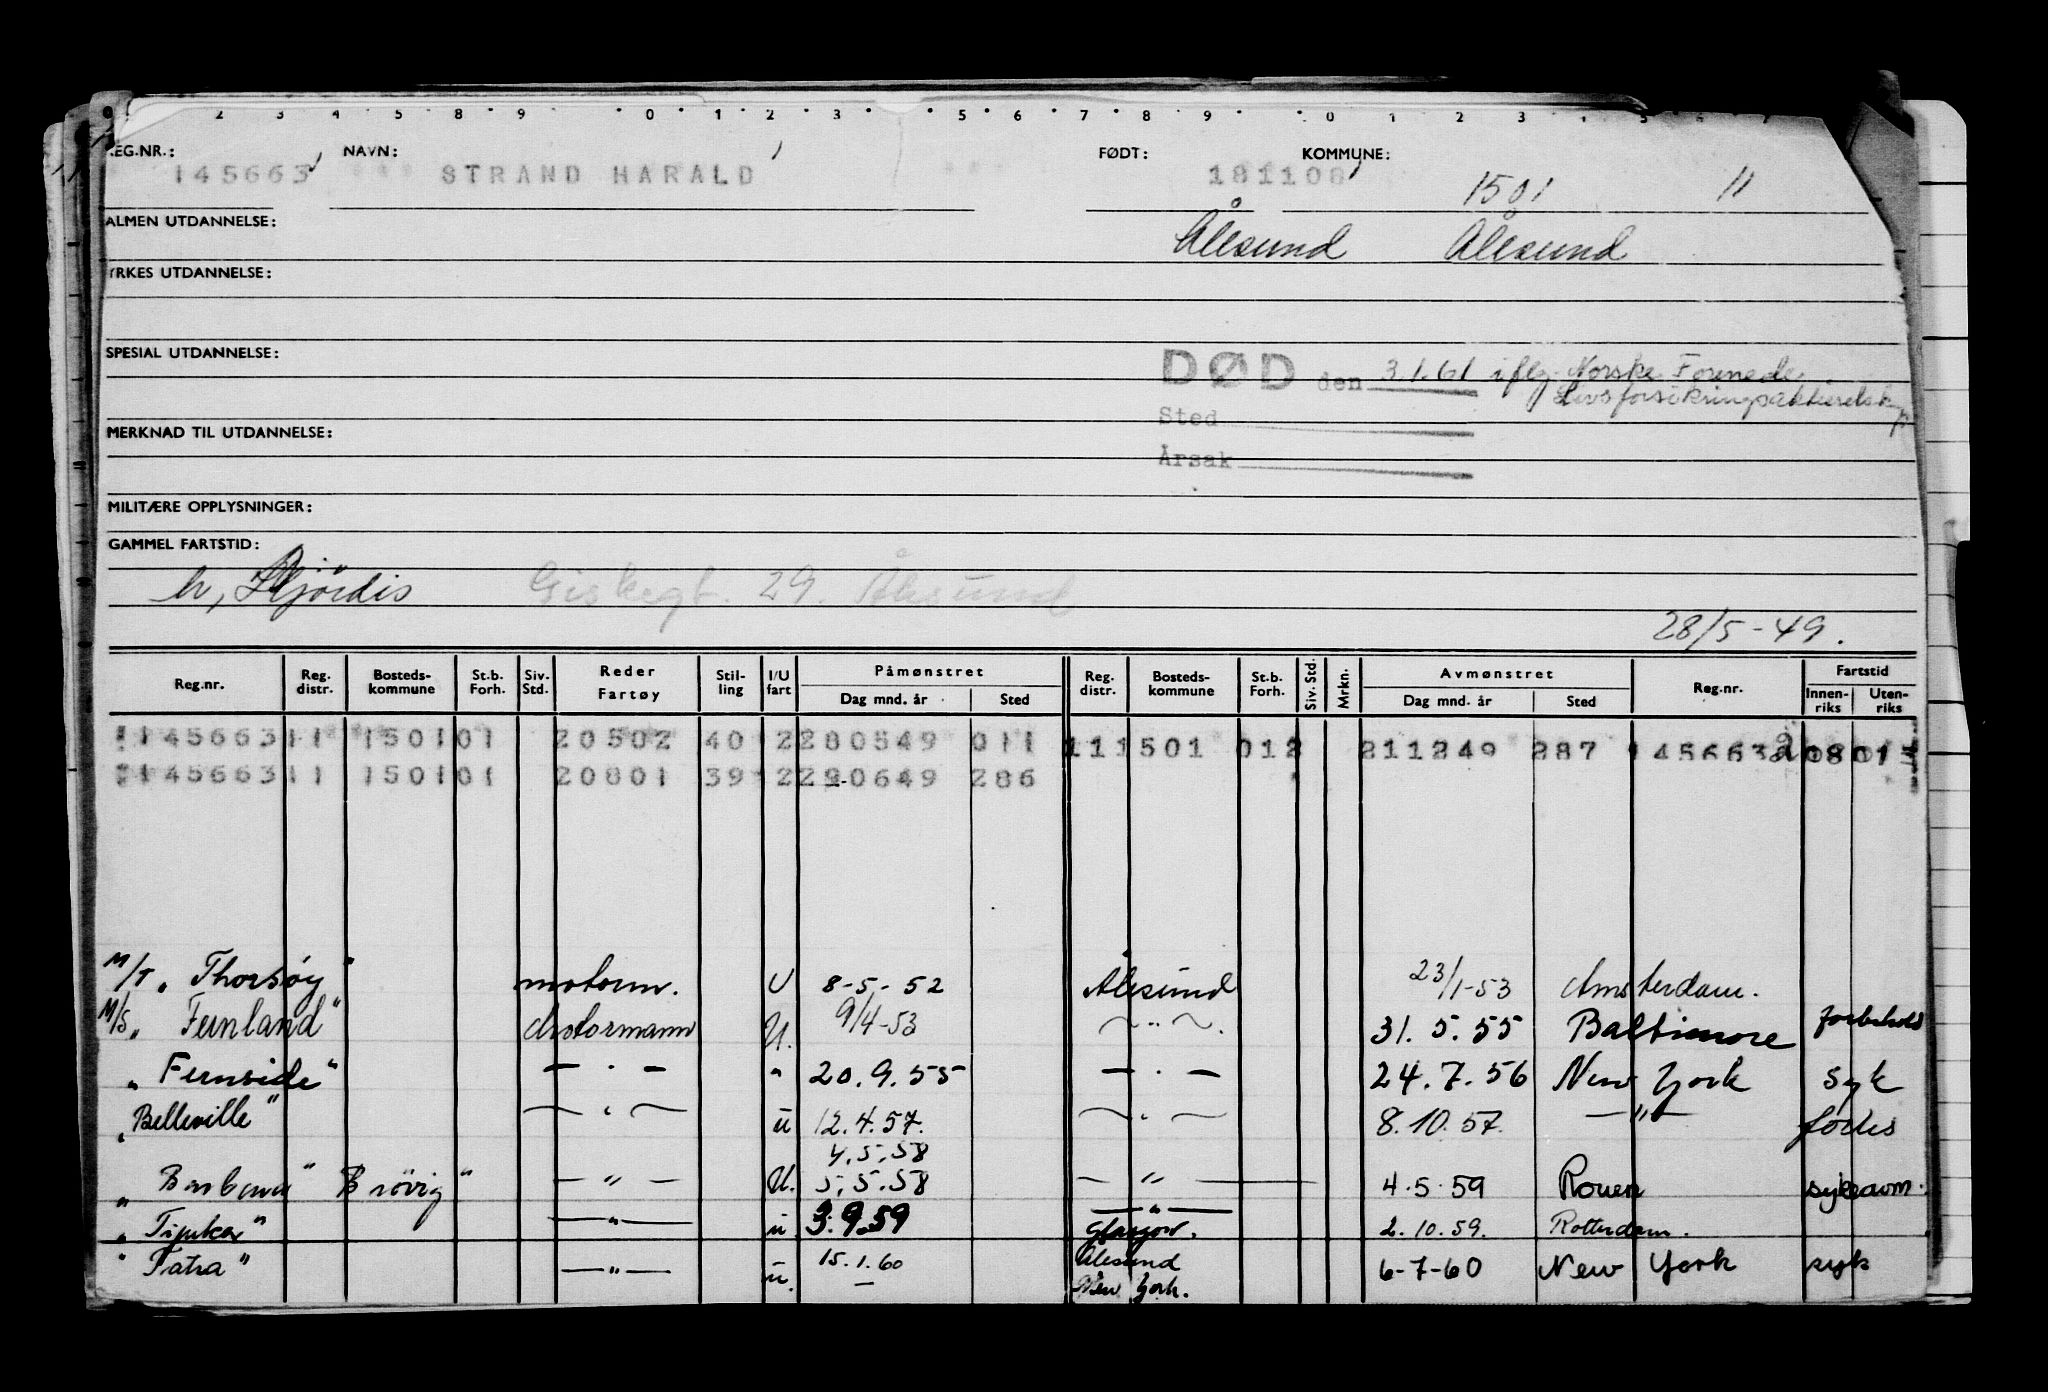 2 3 4 5 8 9 0 1 2 3 5 6 7 8 9 0 1 2 3
EG.NR.: NAVN: FØDT: KOMMUNE:
145663 STRAND HARALD 181108 1501 11
ALMEN UTDANNELSE: Ålesund Ålesund
YRKES UTDANNELSE:
SPESIAL UTDANNELSE:
DØD den 3.1.61 iflg. Norske Forenede
Livsforsikringsaktieselskap
Sted
MERKNAD TIL UTDANNELSE:
Årsak
MILITÆRE OPPLYSNINGER:
GAMMEL FARTSTID:
h, Hjördis Giskegt. 29. Ålesund
28/5-49.
Reg.nr. Reg. distr. Bosteds-kommune St.b. Forh. Siv. Std. Reder Fartøy Stil-ling I/U fart Påmønstret Dag mnd. år Sted Reg. distr. Bosteds-kommune St.b. Forh. Siv. Std. Mrkn. Avmønstret Dag mnd. år Sted Reg.nr. Fartstid Innen-riks Uten-riks
145663 11 1501 01 20502 40 12 280549 011 111501 012 211249 287 145663
145663 11 1501 01 20801 39 12 290649 286
M/T „Thorsøy" motorm. U 8-5-52 Ålesund 23/1-53 Amsterdam.
M/S „Fernland" Motormann U. 9/4-53 — " —. 31.5.55 Baltimore forbehold
„Fernside" — " — " 20.9.55 — " — 24.7.56 New York syk
„Belleville" — " — u 12.4.57. — " — 8.10.57. — " —
4.5.58
„Barbara Brøvig" — " — U. 5.5.58 — " — 4.5.59 Rouen sykeavm.
„Tijuka" — " — u. 3.9.59 — " — Glasgow. 2.10.59. Rotterdam.
„Tatra" — " — u. 15.1.60 Ålesund 6-7-60 New York syk
— New York.